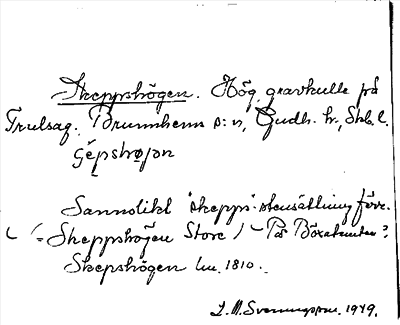 Skeppshögen. Hög gravkulle på
Trulsag. Brunnhem s:n, Gudh. hr, Skb. l.
gépshøjən
Sannolikt "skepps"-stensättning förr.
(= Skeppshögen Store) - På Böxatomten?
Skepshögen lm. 1810.
J. M. Svenningson. 1949.